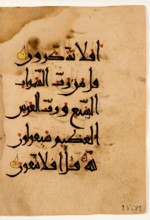 افلا تذكرون
قل من رب السموات
السبع ورب العرش
العظيم سيقولون
لله قل افلا تتقون